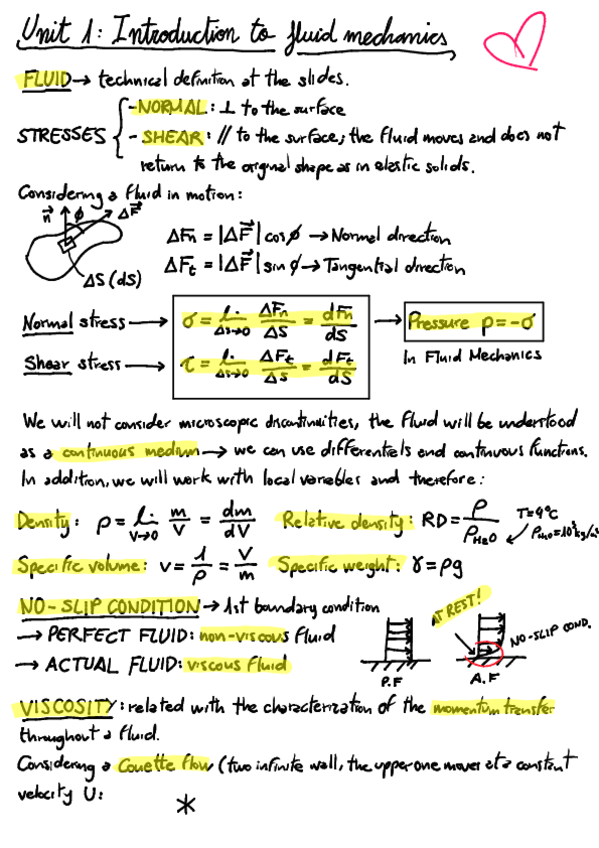 Unit 1: Introduction to fluid mechanics
FLUID → technical definition at the slides.
STRESSES { - NORMAL: ⊥ to the surface
- SHEAR: // to the surface; the fluid moves and does not
return to the original shape as in elastic solids.
Considering a fluid in motion:
n⃗ ϕ ΔF⃗
ΔS (dS)
ΔFn = |ΔF⃗| cos ϕ → Normal direction
ΔFt = |ΔF⃗| sin ϕ → Tangential direction
Normal stress → σ = lim ΔS→0 ΔFn/ΔS = dFn/dS → Pressure p = -σ
Shear stress → τ = lim ΔS→0 ΔFt/ΔS = dFt/dS
In Fluid Mechanics
We will not consider microscopic discontinuities, the fluid will be understood
as a continuous medium → we can use differentials and continuous functions.
In addition, we will work with local variables and therefore:
Density: ρ = lim V→0 m/V = dm/dV Relative density: RD = ρ/ρH2O T=4ºC
Specific volume: v = 1/ρ = V/m Specific weight: γ = ρg
NO-SLIP CONDITION → 1st boundary condition
→ PERFECT FLUID: non-viscous fluid
→ ACTUAL FLUID: viscous fluid
P.F
AT REST!
NO-SLIP COND.
A.F
VISCOSITY: related with the characterization of the momentum transfer
throughout a fluid.
Considering a Couette flow (two infinite wall, the upper one moves at a constant
velocity U:
*